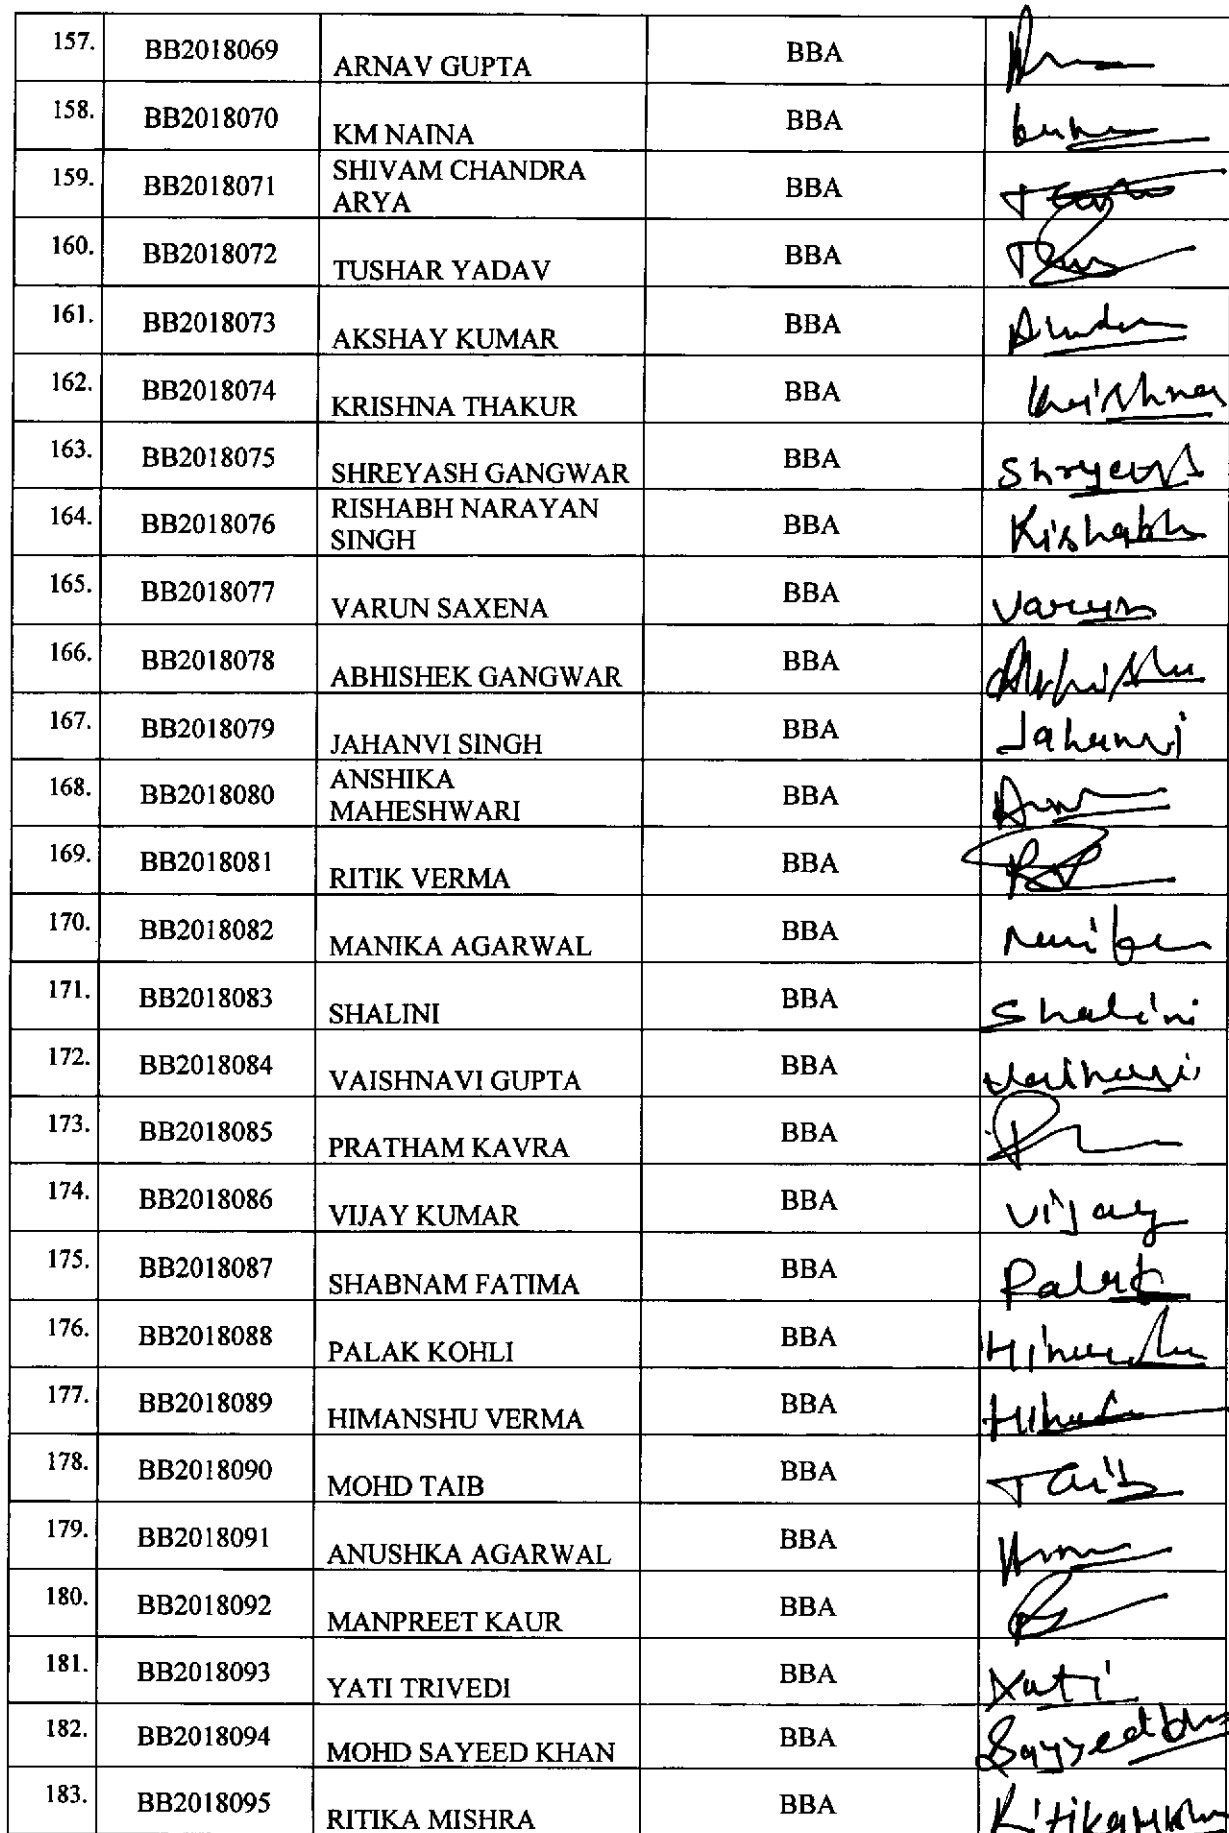 157. BB2018069 ARNAV GUPTA BBA
158. BB2018070 KM NAINA BBA
159. BB2018071 SHIVAM CHANDRA ARYA BBA
160. BB2018072 TUSHAR YADAV BBA
161. BB2018073 AKSHAY KUMAR BBA
162. BB2018074 KRISHNA THAKUR BBA Krishna
163. BB2018075 SHREYASH GANGWAR BBA
164. BB2018076 RISHABH NARAYAN SINGH BBA Rishabh
165. BB2018077 VARUN SAXENA BBA Varun
166. BB2018078 ABHISHEK GANGWAR BBA
167. BB2018079 JAHANVI SINGH BBA Jahanvi
168. BB2018080 ANSHIKA MAHESHWARI BBA
169. BB2018081 RITIK VERMA BBA
170. BB2018082 MANIKA AGARWAL BBA
171. BB2018083 SHALINI BBA Shalini
172. BB2018084 VAISHNAVI GUPTA BBA
173. BB2018085 PRATHAM KAVRA BBA
174. BB2018086 VIJAY KUMAR BBA Vijay
175. BB2018087 SHABNAM FATIMA BBA Palak
176. BB2018088 PALAK KOHLI BBA
177. BB2018089 HIMANSHU VERMA BBA
178. BB2018090 MOHD TAIB BBA Taib
179. BB2018091 ANUSHKA AGARWAL BBA
180. BB2018092 MANPREET KAUR BBA
181. BB2018093 YATI TRIVEDI BBA Yati
182. BB2018094 MOHD SAYEED KHAN BBA
183. BB2018095 RITIKA MISHRA BBA